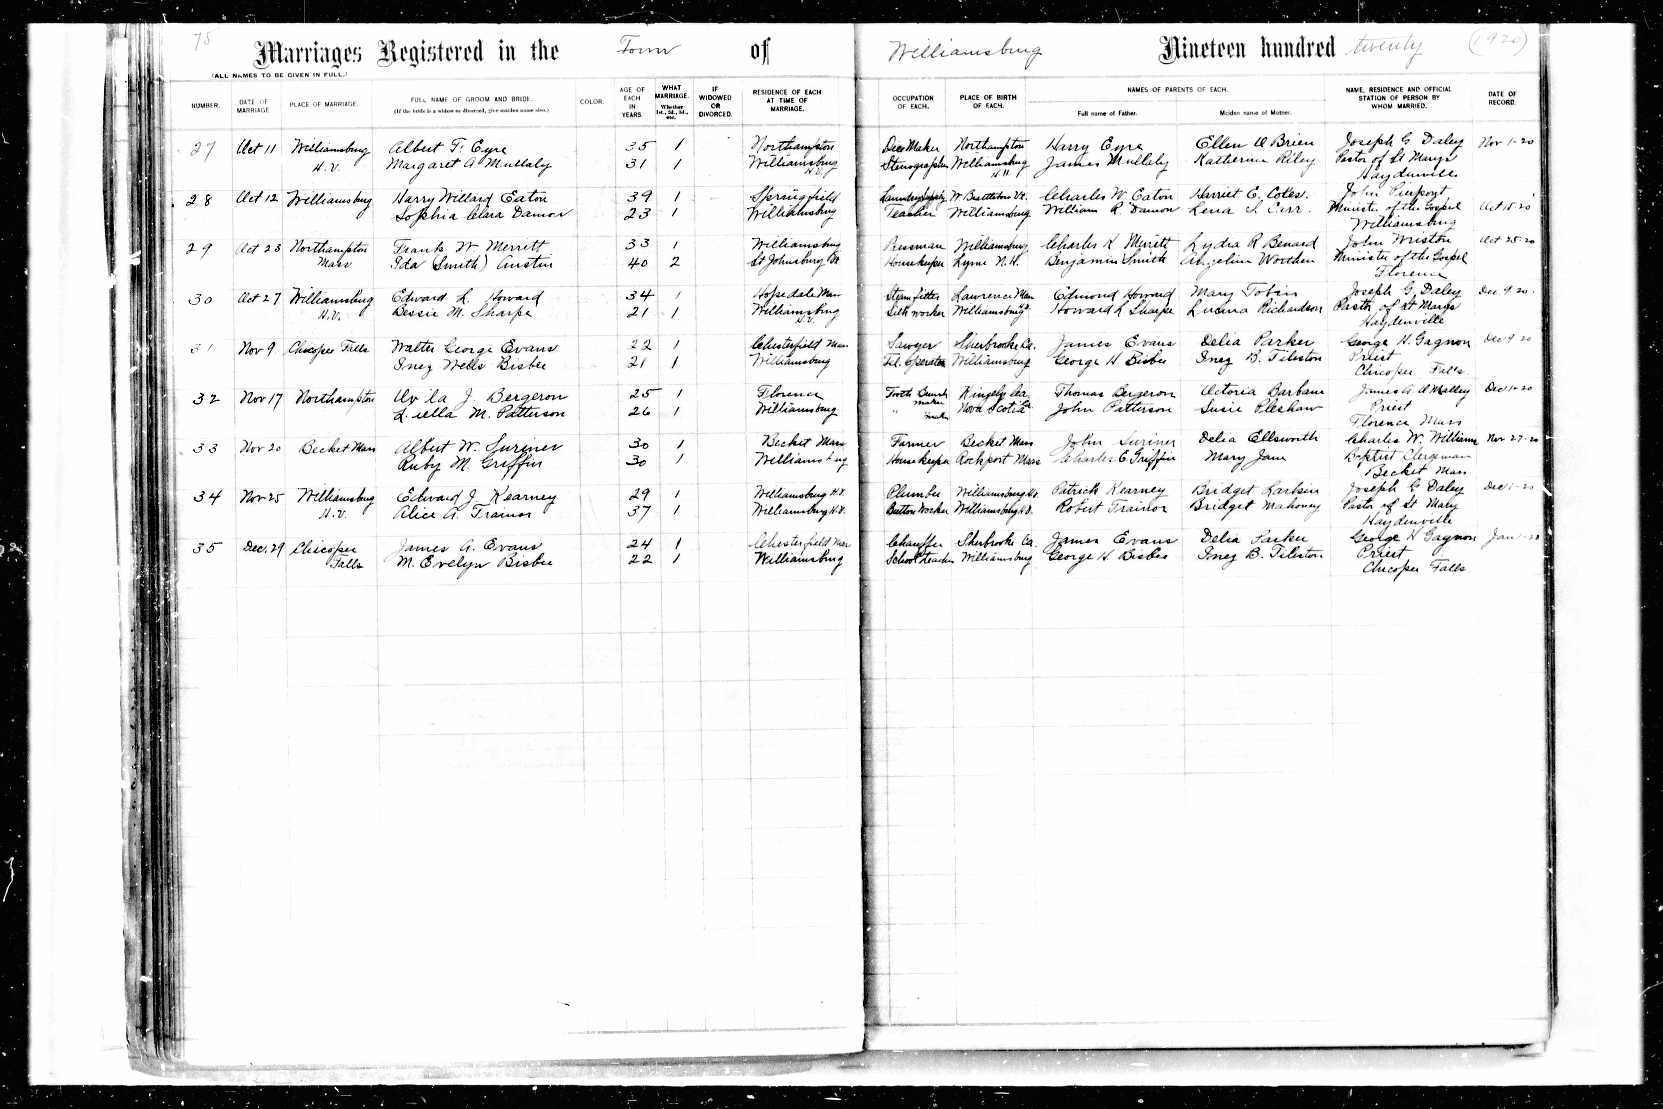 75
Marriages Registered in the Town of Williamsburg Nineteen hundred twenty (1920)
(ALL NAMES TO BE GIVEN IN FULL.)
NUMBER. DATE OF MARRIAGE. PLACE OF MARRIAGE. FULL NAME OF GROOM AND BRIDE. (If the bride is a widow or divorced, give maiden name also.) COLOR. AGE OF EACH IN YEARS. WHAT MARRIAGE. Whether 1st., 2d., 3d., etc. IF WIDOWED OR DIVORCED. RESIDENCE OF EACH AT TIME OF MARRIAGE. OCCUPATION OF EACH. PLACE OF BIRTH OF EACH. NAMES OF PARENTS OF EACH. Full name of Father. Maiden name of Mother. NAME, RESIDENCE AND OFFICIAL STATION OF PERSON BY WHOM MARRIED. DATE OF RECORD.
27 Oct 11 Williamsburg Albert F. Eyre 35 1 Northampton Northampton Harry Eyre Ellen O Brien Joseph G Daley Nov 1-20
H.V. Margaret A Mullaly 31 1 Williamsburg H.V. Stenographer Williamsburg James Mullaly Katherine Riley Pastor of St Marys
Haydenville
28 Oct 12 Williamsburg Harry Willard Eaton 39 1 Springfield W Brattleboro Vt. Charles W. Eaton Harriet E. Coles. John Pierpont
Sophia Clara Damon 23 1 Williamsburg Teacher Williamsburg William R Damon Lena I. Minister of the Gospel Oct 15-20
Williamsburg
29 Oct 23 Northampton Frank W. Merritt 33 1 Williamsburg Williamsburg Charles K Merritt Lydia R Benard John Wriston Oct 25-20
Mass Ida (Smith) Austin 40 2 St Johnsburg Vt Housekeeper Lyme N.H. Benjamin Smith Angeline Worthen Minister of the Gospel
Florence
30 Oct 27 Williamsburg Edward L. Howard 34 1 Hopedale Mass Steam fitter Lawrence Mass Edmond Howard Mary Tobin Joseph G. Daley Dec 9 20.
H.V. Bessie M. Sharpe 21 1 Williamsburg H.V. Silk worker Williamsburg Howard L Sharpe Lucina Richardson Pastor of St Marys
Haydenville
31 Nov 9 Chicopee Falls Walter George Evans 22 1 Chesterfield Mass. Sawyer Sherbrooke Ca. James Evans Delia Parker George H. Gagnon Dec 9 20
Inez Wells Bisbee 21 1 Williamsburg Tel. Operator Williamsburg George H Bisbee Inez B. Tilston Priest
Chicopee Falls
32 Nov 17 Northampton Avila J. Bergeron 25 1 Florence Tooth Brush maker Thomas Bergeron Victoria Barbeau James A O'Malley Dec 1-20
Luella M. Patterson 26 1 Williamsburg " maker Nova Scotia John Patterson Susie Priest
Florence Mass
33 Nov 20 Becket Mass Albert W. Suriner 30 1 Becket Mass Farmer Becket Mass John Suriner Delia Ellsworth Charles W. Williams Nov 27-20
Ruby M. Griffin 30 1 Williamsburg Housekeeper Rockport Mass Charles E Griffin Mary Jane Baptist Clergeman
Becket Mass
34 Nov 25 Williamsburg Edward J. Kearney 29 1 Williamsburg H.V. Plumber Williamsburg H.V. Patrick Kearney Bridget Larkin Joseph G Daley Dec 1-20
H.V. Alice A. Trainor 37 1 Williamsburg H.V. Button Worker Williamsburg H.V. Robert Trainor Bridget Mahoney Pastor of St Mary
Haydenville
35 Dec. 29 Chicopee James A. Evans 24 1 Chesterfield Mass Chauffer Sherbrooke Ca. James Evans Delia Parker George H Gagnon Jan
Falls M. Evelyn Bisbee 22 1 Williamsburg School teacher Williamsburg George H Bisbee Inez B. Tilston Priest
Chicopee Falls